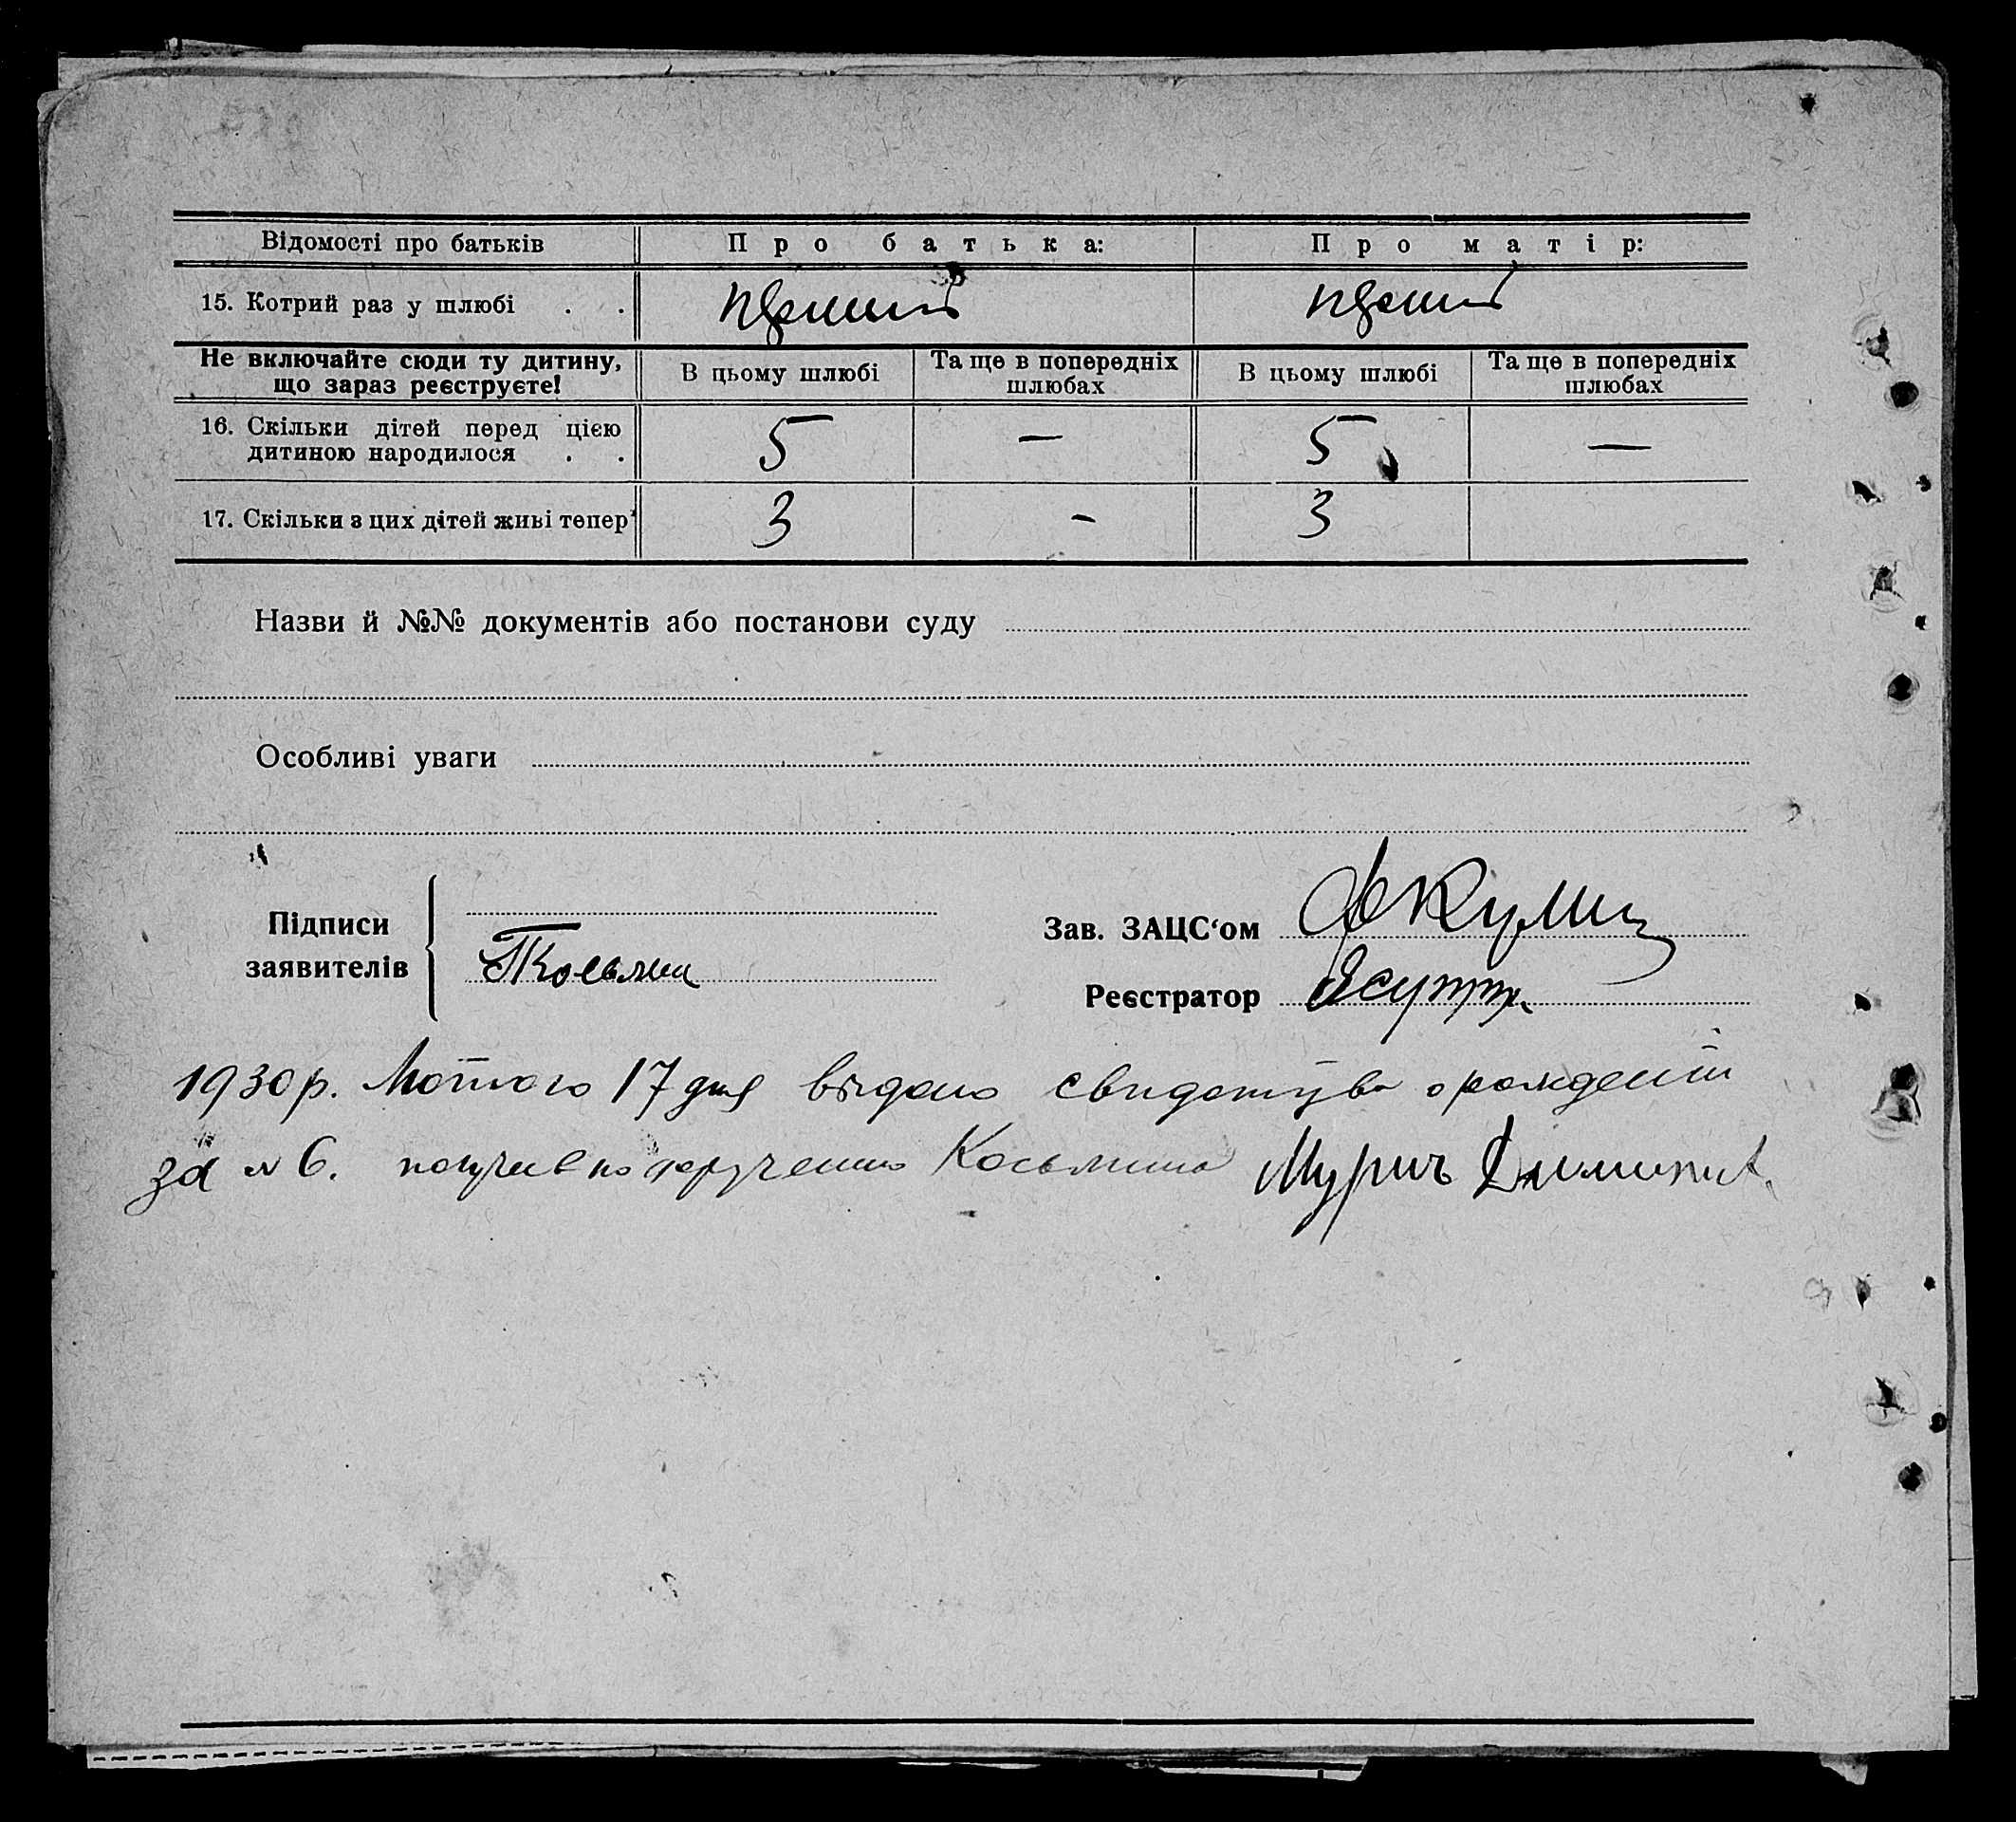 Відомості про батьків Про батька: Про матір:
15. Котрий раз у шлюбі . . первий первий
Не включайте сюди ту дитину, що зараз реєструєте! В цьому шлюбі Та ще в попередніх шлюбах В цьому шлюбі Та ще в попередніх шлюбах
16. Скільки дітей перед цією дитиною народилося . . 5 — 5 —
17. Скільки з цих дітей живі тепер 3 - 3
Назви й №№ документів або постанови суду
Особливі уваги
Підписи заявителів
Зав. ЗАЦС‘ом
Реєстратор
1930 р. Лютого 17 дня видано о рождении
за № 6. по поручению Косьмина